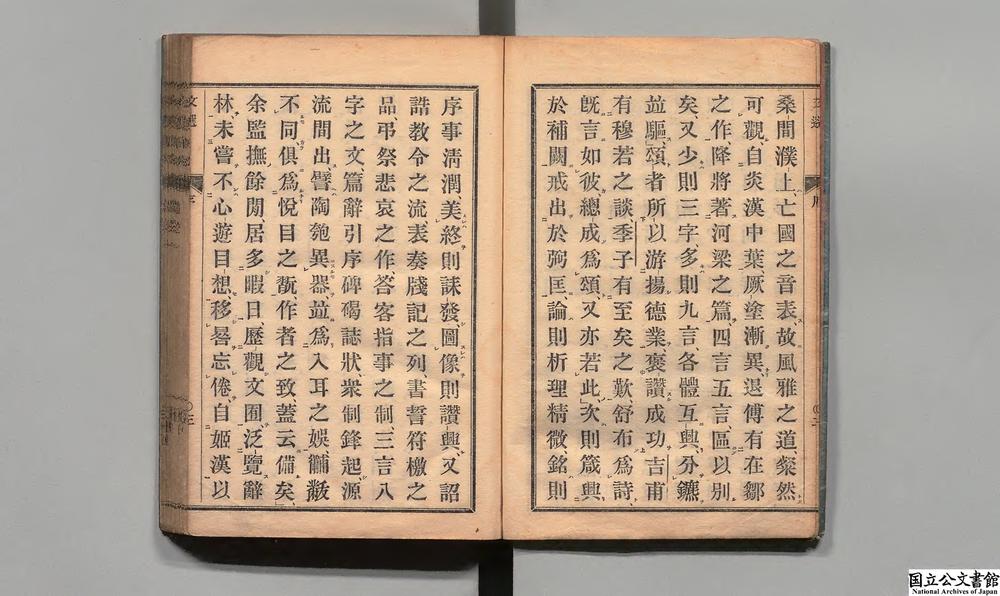 桑間濮上、亡國之音表、故風雅之道、粲然
可觀、自炎漢中葉、厥塗漸異、退傅有在鄒
之作、降將著河梁之篇、四言五言、區以別
矣、又少則三字、多則九言、各體互興、分鑣
並驅、頌者所以游揚德業、褒讚成功、吉甫
有穆若之談、季子有至矣之歎、舒布爲詩、
既言如彼、總成爲頌、又亦若此、次則箴興
於補闕、戒出於弼匡、論則析理精微、銘則
序事清潤、美終則誄發、圖像則讚興、又詔
誥教令之流、表奏牋記之列、書誓符檄之
品、弔祭悲哀之作、答客指事之制、三言八
字之文、篇辭引序、碑碣誌狀、衆制鋒起、源
流間出、譬陶匏異器、並爲入耳之娯、黼黻
不同、俱爲悅目之翫、作者之致、蓋云備矣、
余監撫餘閒、居多暇日、歷觀文囿、泛覽辭
林、未嘗不心遊目想、移晷忘倦、自姬漢以
文選
序
国立公文書館
National Archives of Japan